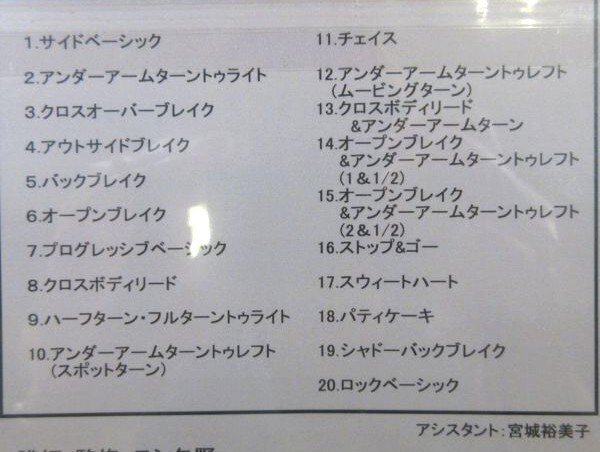 1.サイドベーシック
2.アンダーアームターントゥライト
3.クロスオーバーブレイク
4.アウトサイドブレイク
5.バックブレイク
6.オープンブレイク
7.プログレッシブベーシック
8.クロスボディリード
9.ハーフターン・フルターントゥライト
10.アンダーアームターントゥレフト
(スポットターン)
11.チェイス
12.アンダーアームターントゥレフト
(ムービングターン)
13.クロスボディリード
&アンダーアームターン
14.オープンブレイク
&アンダーアームターントゥレフト
(1&1/2)
15.オープンブレイク
&アンダーアームターントゥレフト
(2&1/2)
16.ストップ&ゴー
17.スウィートハート
18.パティケーキ
19.シャドーバックブレイク
20.ロックベーシック
アシスタント:宮城裕美子